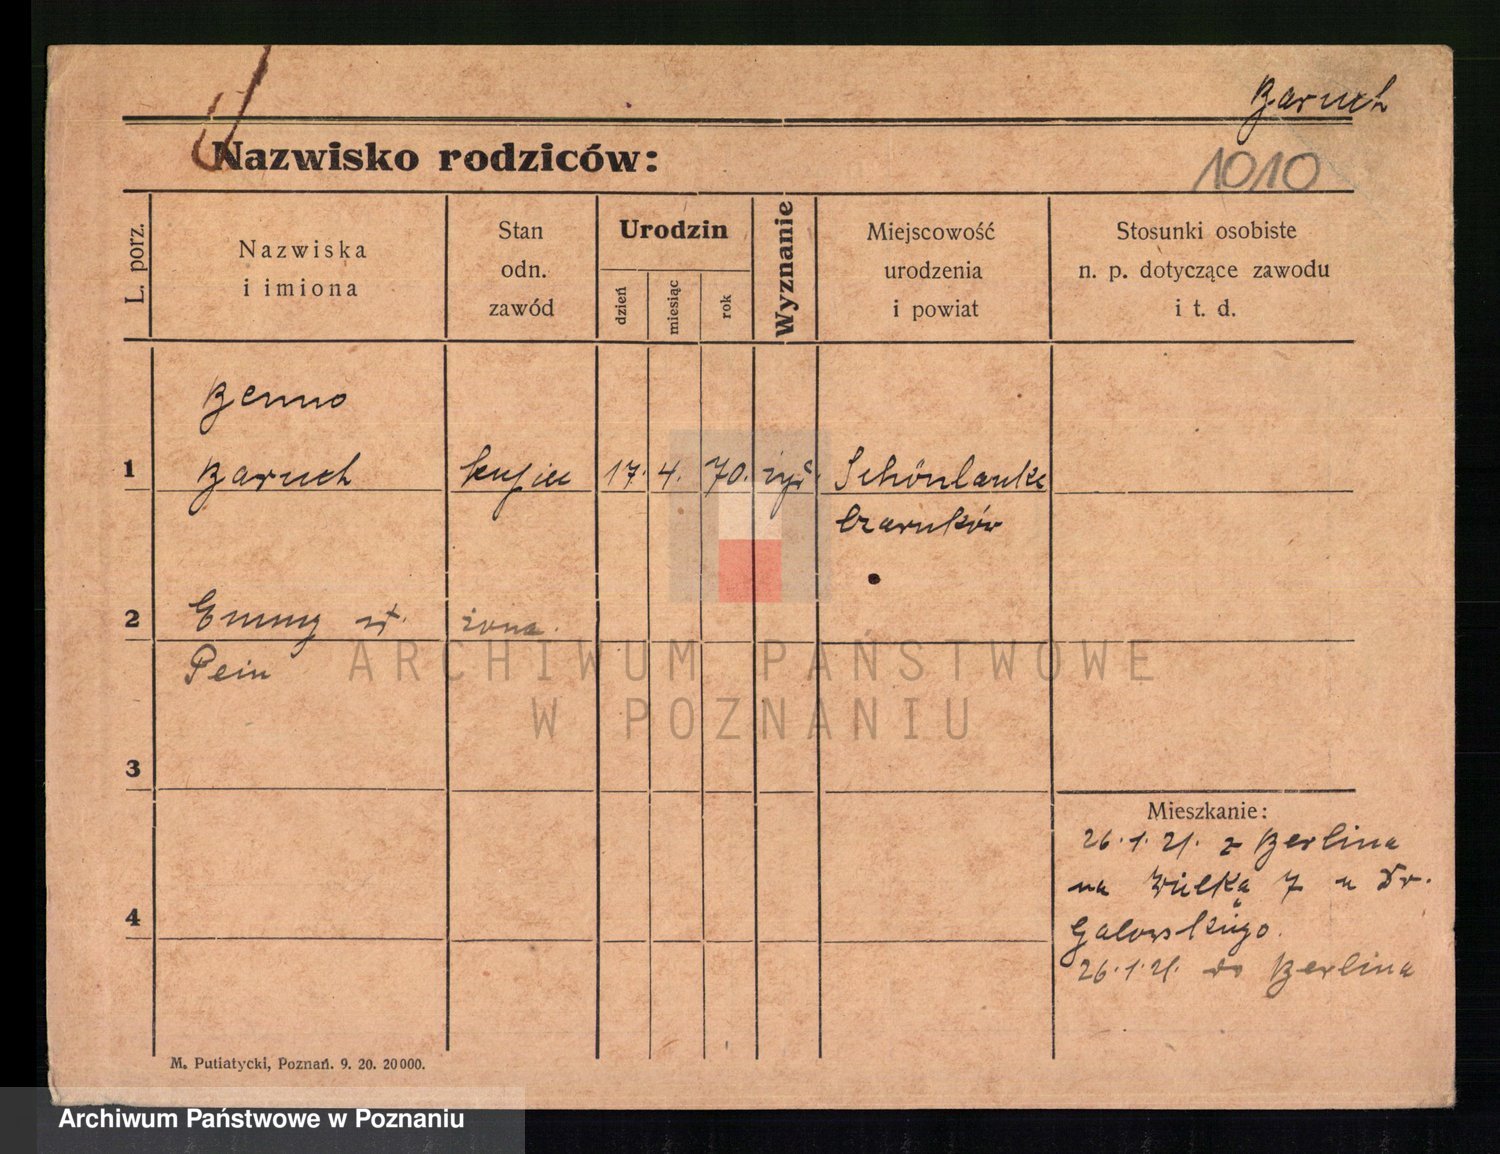 Baruch
Nazwisko rodziców:
1010
L. porz.
Nazwiska
i imiona
Stan
odn.
zawód
Urodzin
dzień
miesiąc
rok
Wyznanie
Miejscowość
urodzenia
i powiat
Stosunki osobiste
n. p. dotyczące zawodu
i t. d.
Benno
1 Baruch kupiec 17. 4. 70. żyd. Schönlanke
Czarnków
2 Emmy żona.
Pein
ARCHIWUM PAŃSTWOWE
W POZNANIU
3
Mieszkanie:
26.1.21. z Berlina
na Wielką 7 u Dr.
4
Galewskiego.
26.1.21. do Berlina
M. Putiatycki, Poznań. 9. 20. 20000.
Archiwum Państwowe w Poznaniu